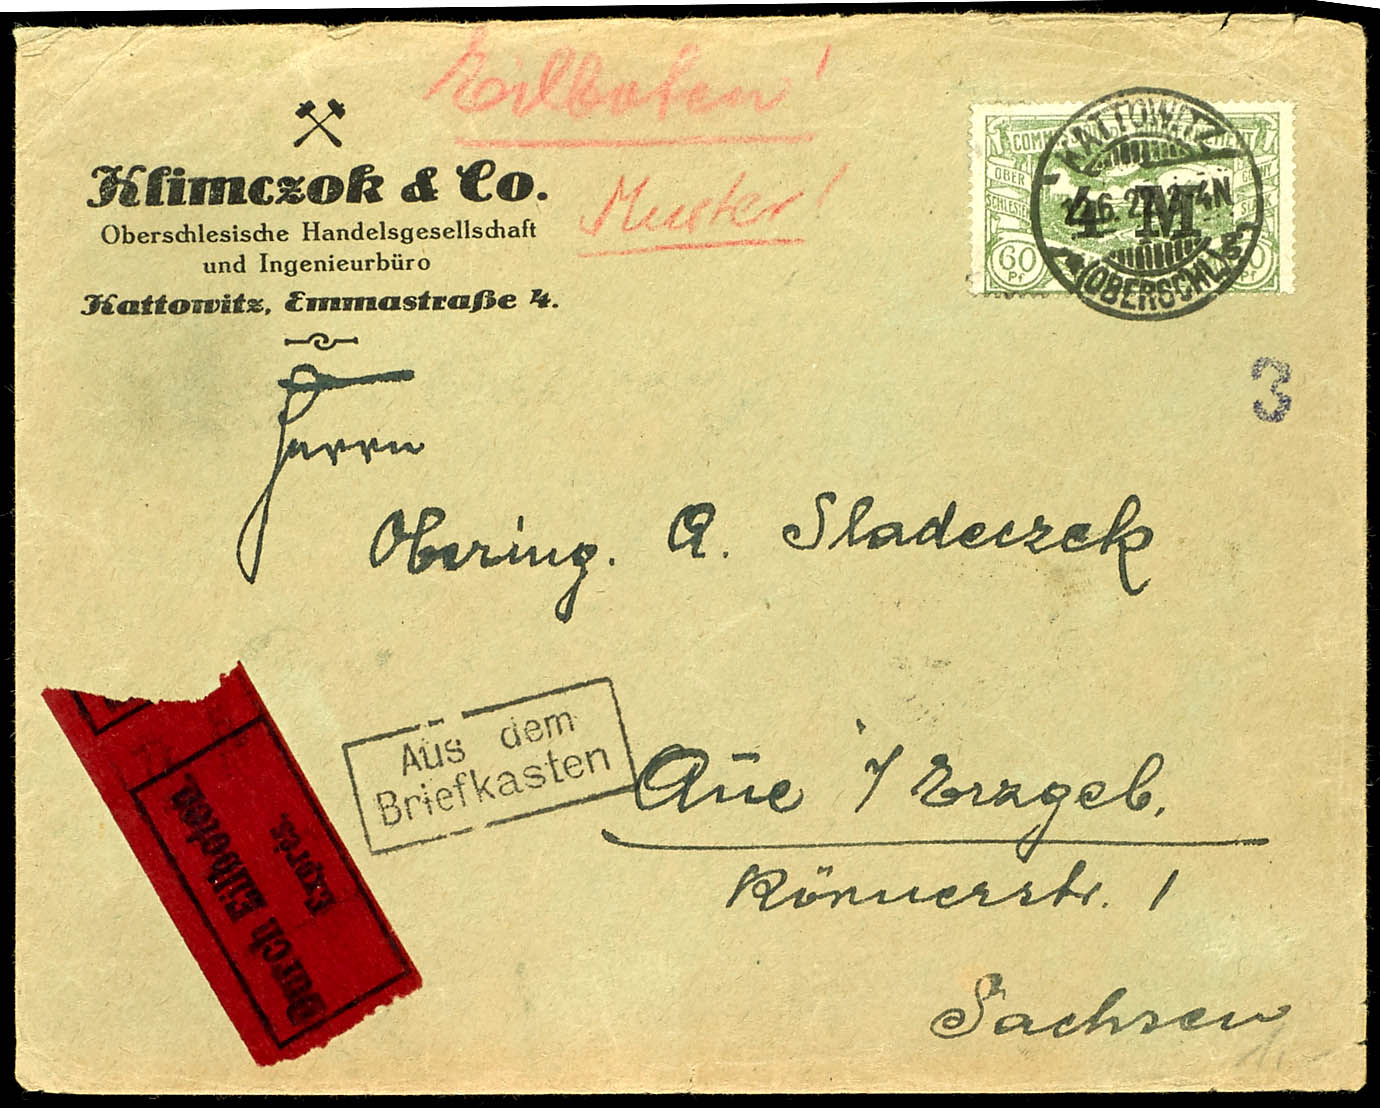 Klimczok & Co.
Oberschlesische Handelsgesellschaft
und Ingenieurbüro
Kattowitz, Emmastraße 4.
Eilboten!
Muster!
COMM
OBER
SCHLESIEN
60
Pf
4 M
KATTOWITZ
(OBERSCHL.)
3
Herrn
Obering. A. Sladeczek
Aus dem
Briefkasten
Aūe i/Erzgeb.
Körnerstr. 1
Sachsen
Durch Eilboten.
Exprès.